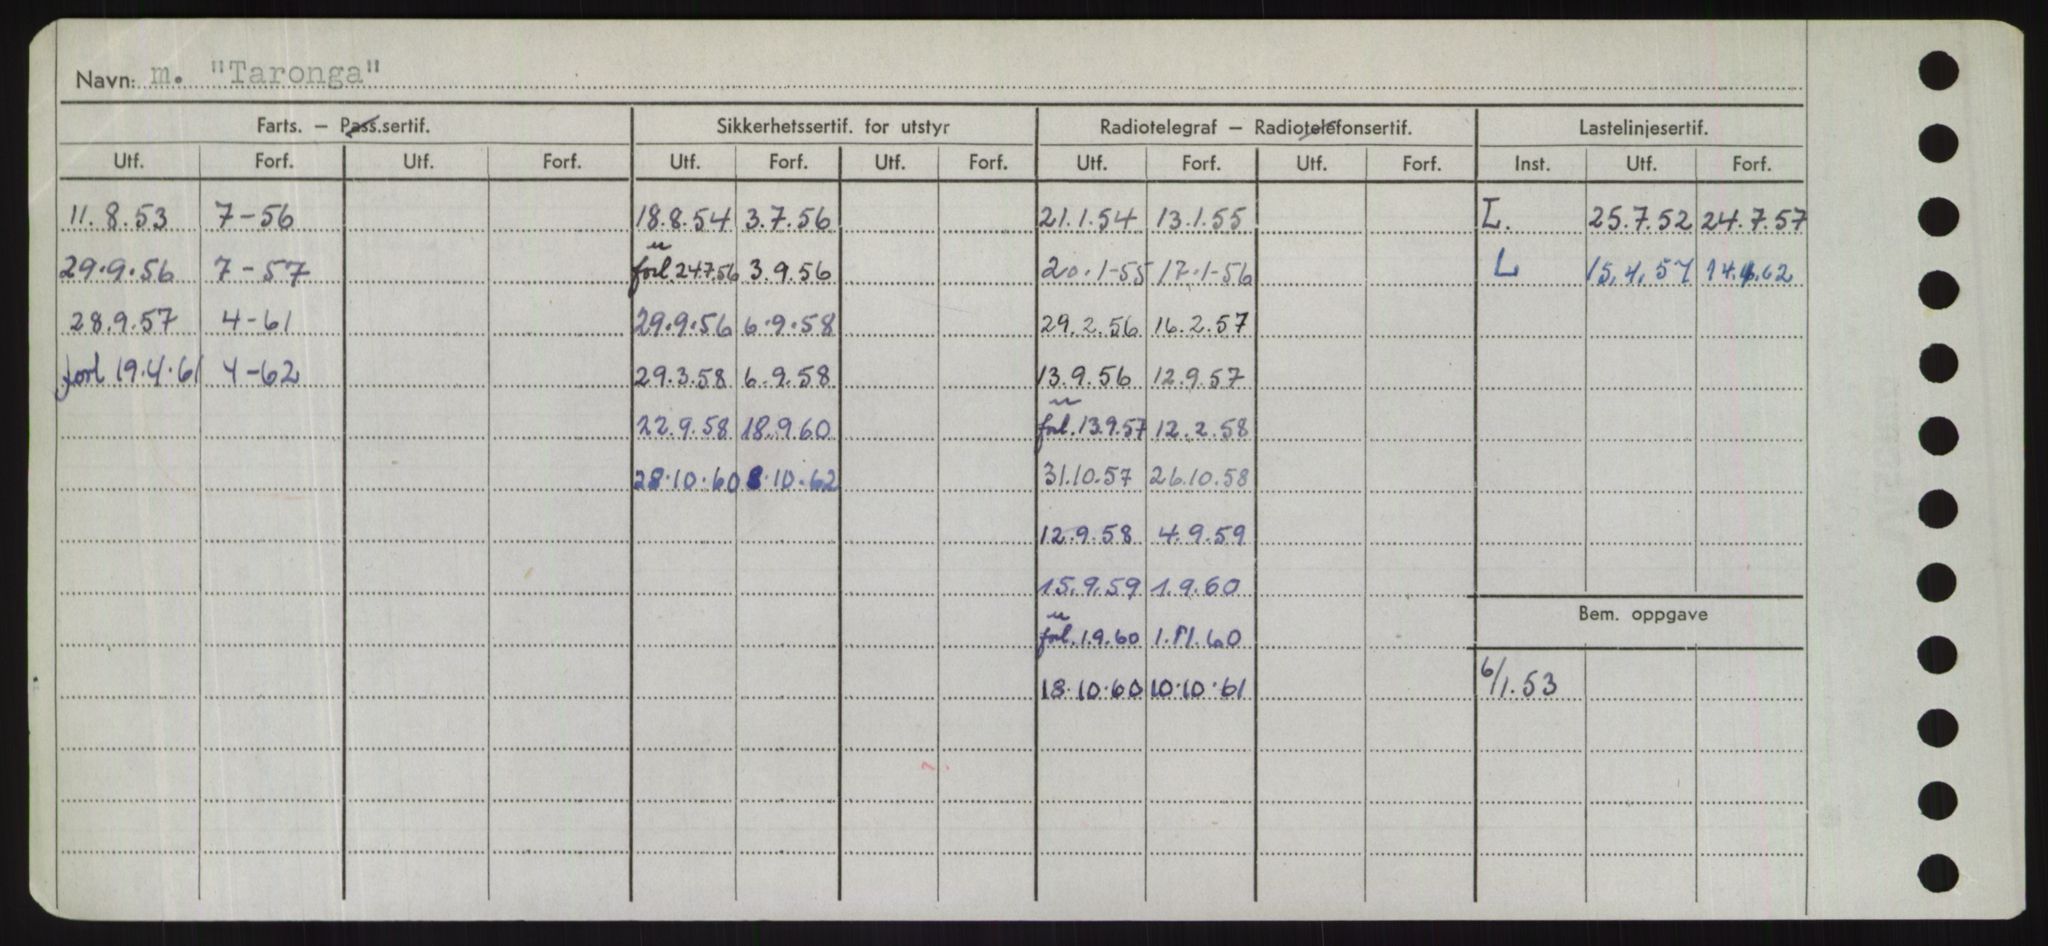 Navn: m. "Taronga"
Farts. – Pass.sertif. Sikkerhetssertif. for utstyr Radiotelegraf – Radiotelefonsertif. Lastelinjesertif.
Utf. Forf. Utf. Forf. Utf. Forf. Utf. Forf. Utf. Forf. Utf. Forf. Inst. Utf. Forf.
11.8.53 7-56 18.8.54 3.7.56 21.1.54 13.1.55 L. 25.7.52 24.7.57
29.9.56 7-57 forl 24.7.56 3.9.56 20.1-55 17.1-56 L 15.4.57 14.4.62
28.9.57 4-61 29.9.56 6.9.58 29.2.56 16.2.57
forl 19.4.61 4-62 29.3.58 6.9.58 13.9.56 12.9.57
22.9.58 18.9.60 forl. 13.9.57 12.2.58
28.10.60 8.10.62 31.10.57 26.10.58
12.9.58 4.9.59
15.9.59 1.9.60
Bem. oppgave
forl. 1.9.60 1.11.60
18.10.60 10.10.61 6/1.53